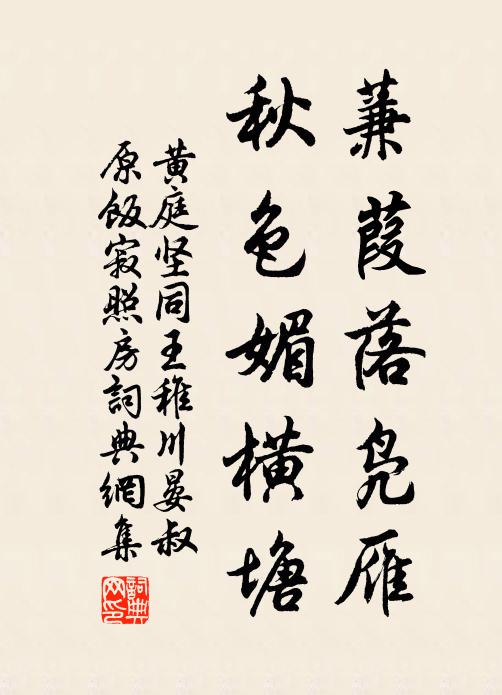 蒹葭落凫雁
秋色媚横塘
黄庭坚同王稚川晏叔
原饭寂照房詞典網集
詞典
网印